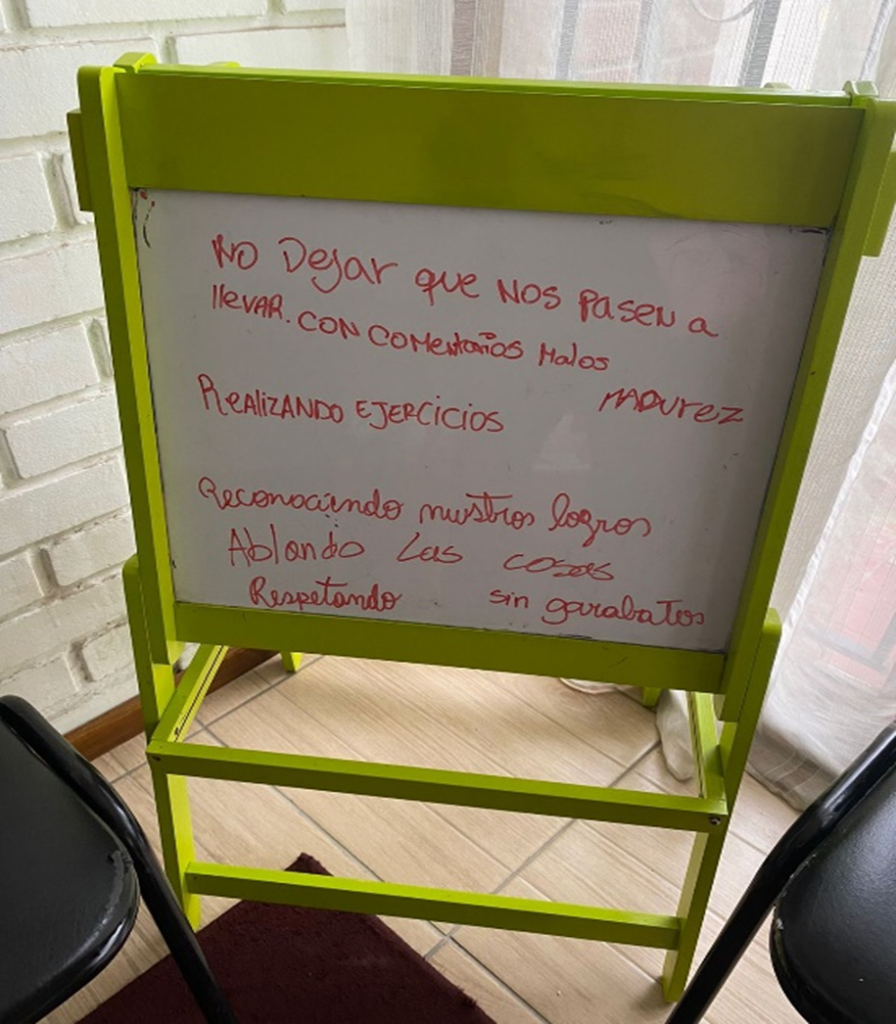 NO Dejar que NOS PaseN a
llevAR. CON COMentarios Malos
REALIZANDO EJERCICIOS
MDurez
Reconociendo nuestros logros
Ablando Las cosas
Respetando sin garabatos